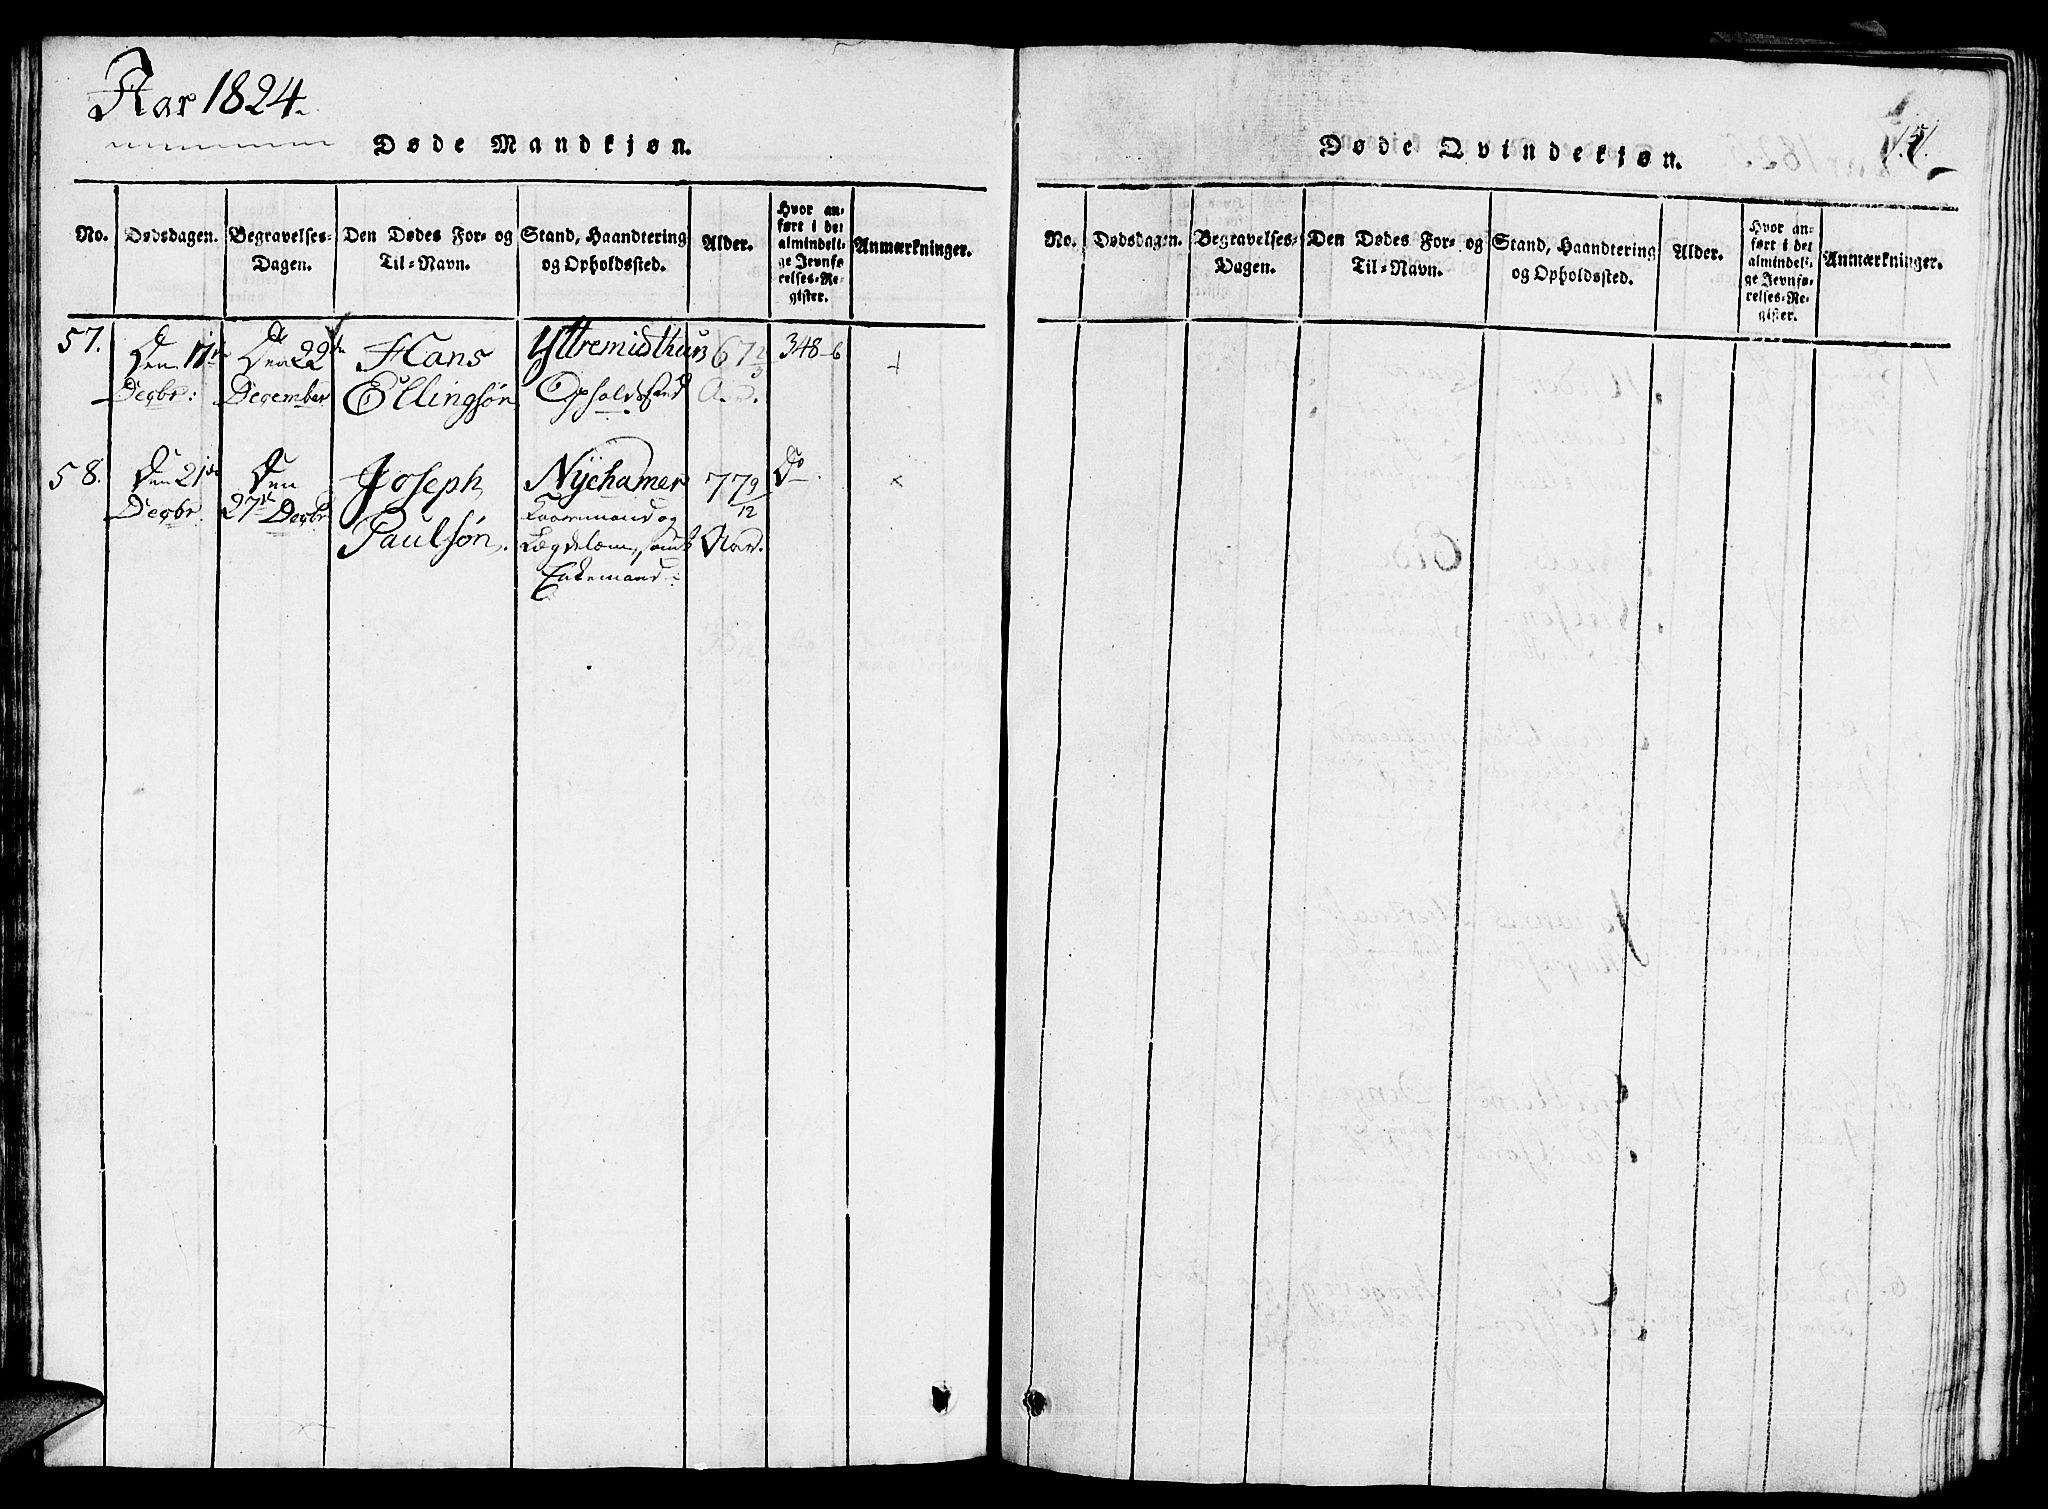 Aar 1824.
Døde Mandkjøn.
No. Dødsdagen. Begravelses-Dagen. Den Dødes For- og Til-Navn. Stand, Haandtering og Opholdssted. Alder. Hvor anført i det almindelige Jevnførelses-Register. Anmærkninger.
57. Den 17de Den 22de Hans Yttremidthun 67 2/3 348-6 +
Decbr: December Ellingsøn Opholdsstæd A. D.
58. Den 21de Den Joseph Nychamer 77 9/12 Do. ×
Decbr. 27de Decbr Paulsøn.
Kaaremand og
Lægdelem, samt Aar.
Enkemand
Døde Qvindekjøn.
No. Dødsdagen. Begravelses-Dagen. Den Dødes For- og Til-Navn. Stand, Haandtering og Opholdssted. Alder. Hvor anført i det almindelige Jevnførelses-Register. Anmærkninger.